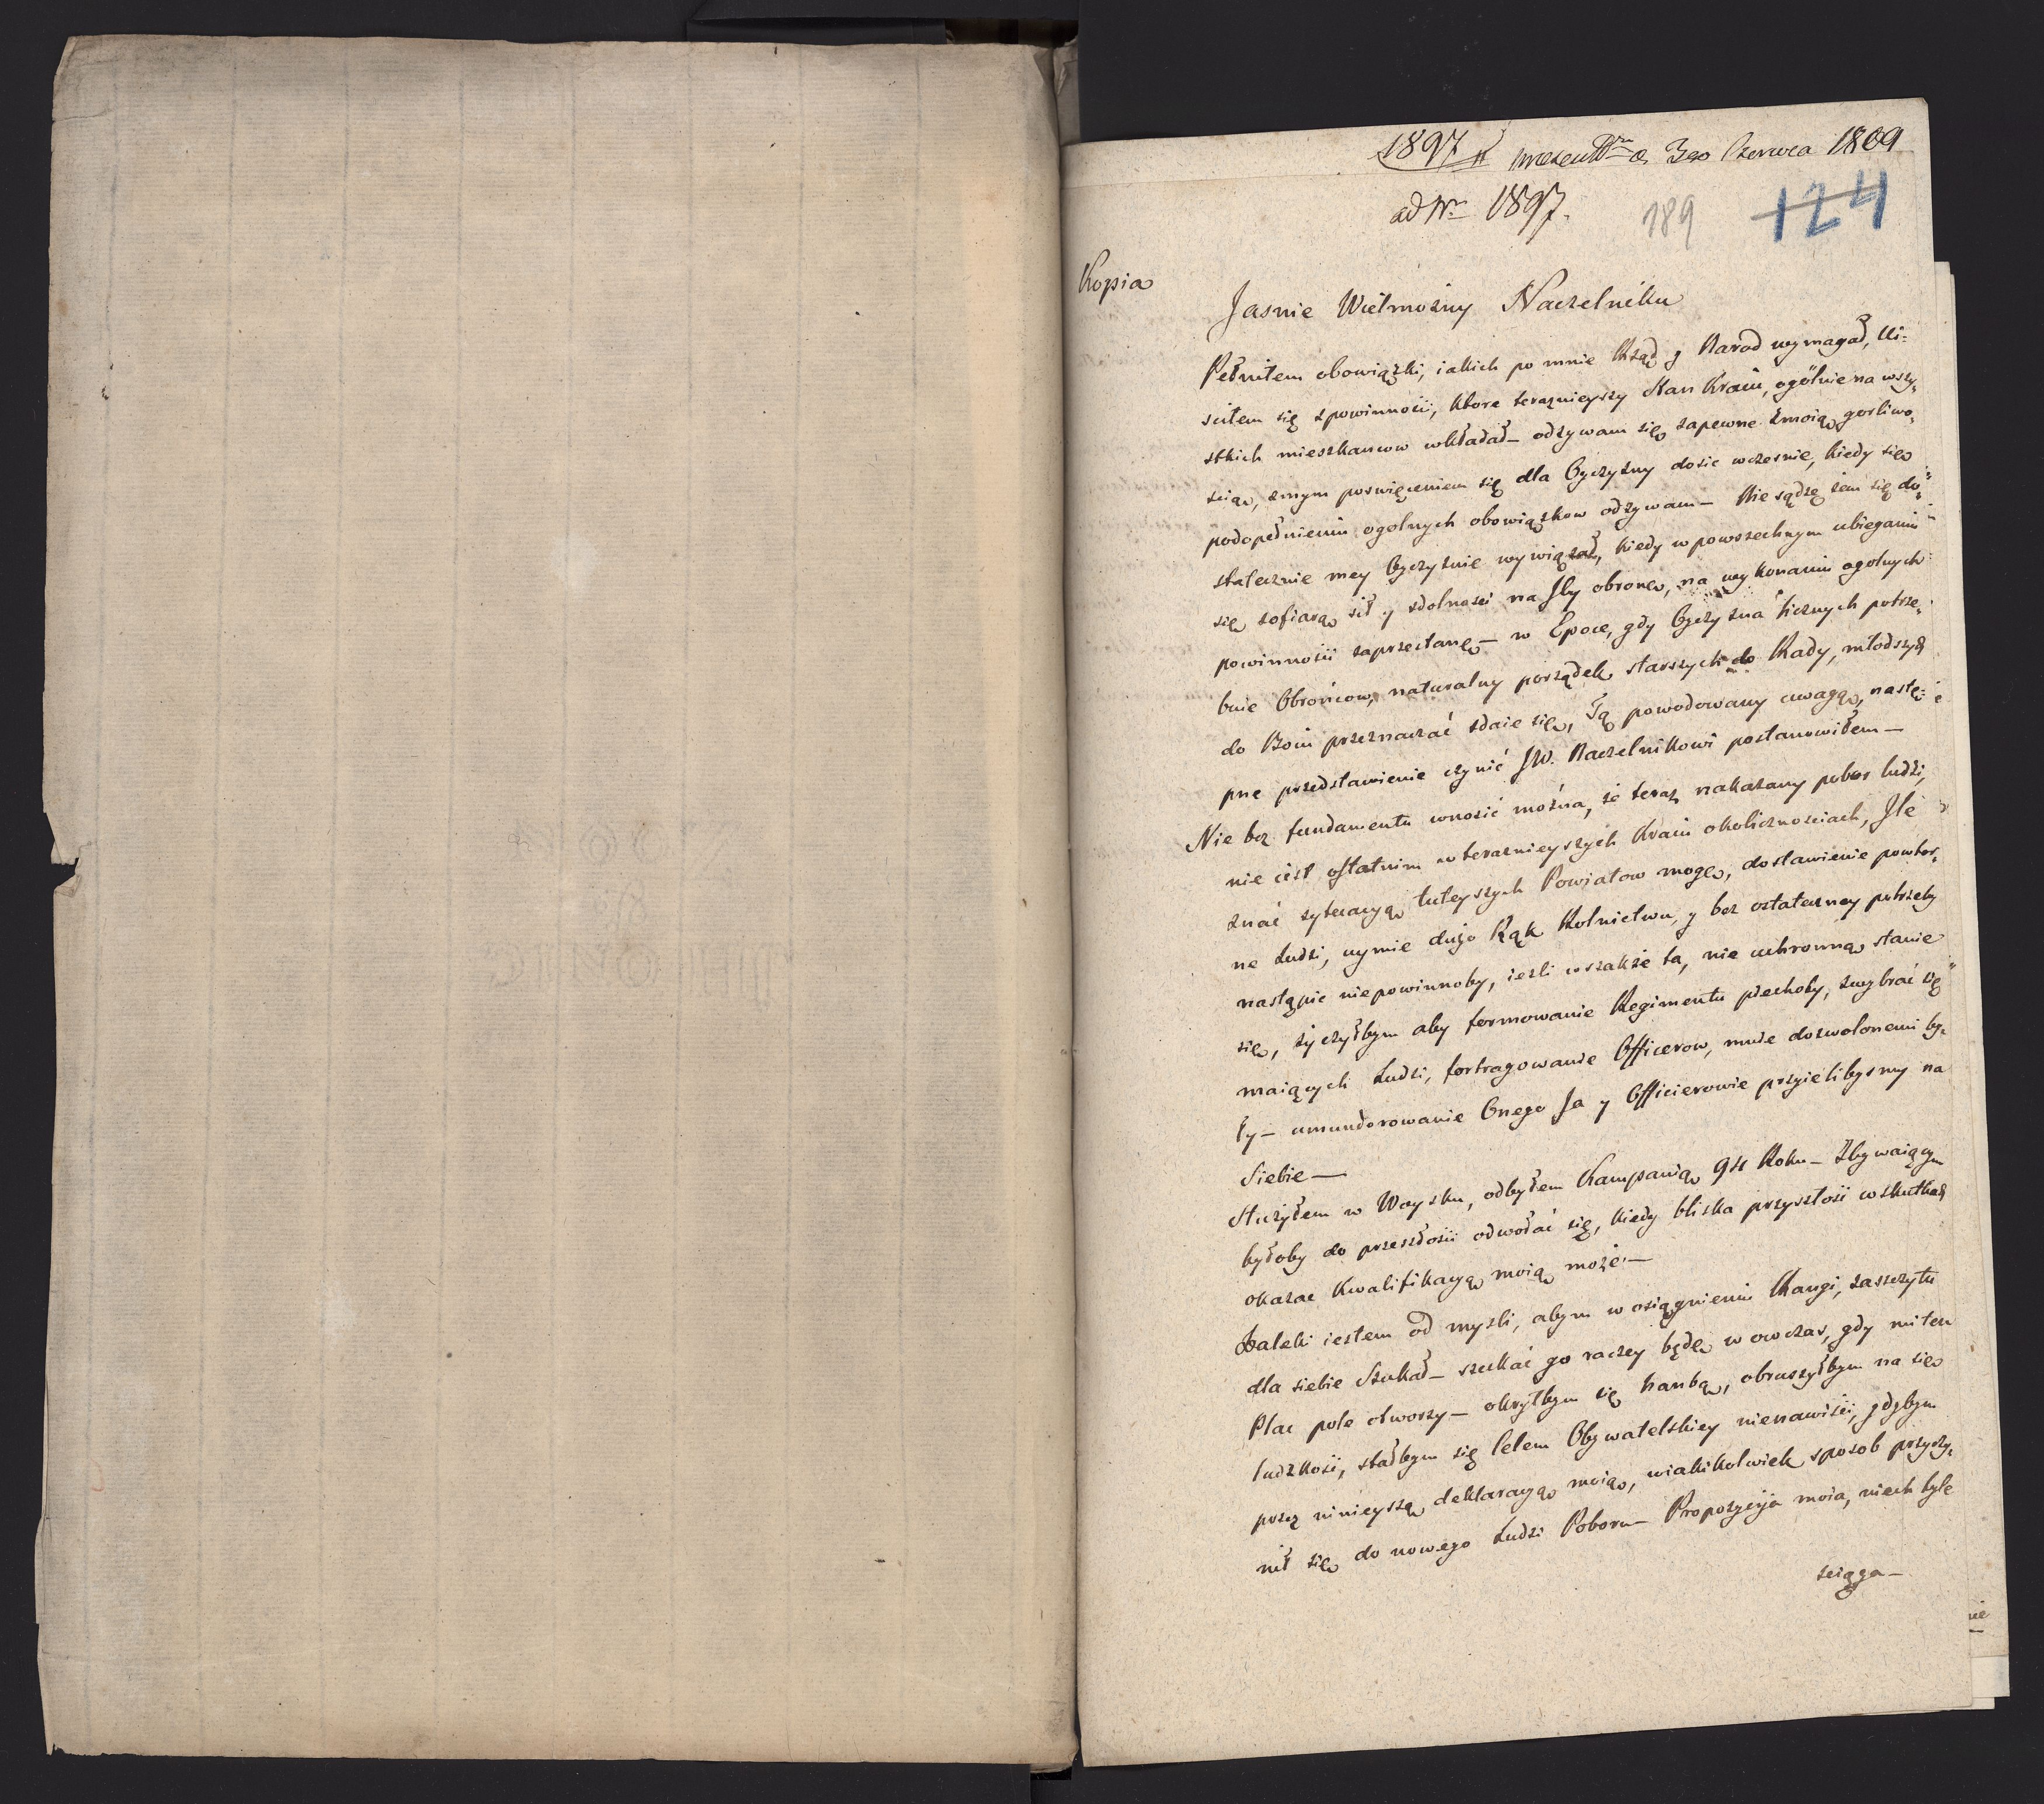 1897 presentm d. 3go Czerwca 1809
ad Nr 1897.
189 124
Kopia
Jasnie Wielmożny Naczelniku
Pełniłem obowiązki, iakich po mnie Rząd y Narod wymagał, Ui-
sciłem się z powinnosci, ktore teraznieyszy Stan Kraiu, ogólnie na wszy-
stkich mieszkancow wkładał – odzywam się zapewne z moią gorliwo-
scią, z mym poswięceniem się dla Oyczyzny dosic wczesnie, kiedy się
podopełnieniu ogolnych obowiązkow odzywam – Nie sądzę żem się do-
statecznie mey Oyczyznie wywiązał, kiedy w powszechnym ubieganiu
się z ofiarą sił y zdolnosci na Jey obronę, na wykonaniu ogolnych
powinnosci zaprzestanę – w Epoce, gdy Oyczyzna licznych potrze-
buie Obrońcow, naturalny porządek starszych do Rady, młodszych
do Boiu przeznaczać zdaie się, Tą powodowany uwagą, nastę-
pne przedstawienie czynić JW. Naczelnikowi postanowiłem –
Nie bez fundamentu wnosić można, że teraz nakazany pobor ludzi,
nie iest ostatnim w teraznieyszych Kraiu okolicznosciach, Jle
znać sytuacyą tuteyszych Powiatow mogę, dostawienie powtor-
ne Ludzi, uymie dużo Rąk Rolnictwu, y bez ostateczney potrzeby
nastąpic niepowinnoby, iezli wszakże ta, nie uchronną stanie
się, życzyłbym aby formowanie Regimentu piechoty, z wybrać się
maiących Ludzi, fortragowanie Officerow, mnie dozwolonemi by-
ły – umundorowanie Onego Ja y Officierowie przyielibysmy na
Siebie –
Służyłem w Woysku, odbyłem Kampanią 94 Roku – Zbywaiącym
byłoby do przeszłosci odwołać się, kiedy bliska przyszłosć w skutkach
okazac Kwalifikacyą moią może –
Daleki iestem od mysli, abym w osiągnieniu Rangi, zaszczytu
dla siebie Szukał – szukać go raczey będę w owczas, gdy mi ten
Plac pole otworzy – okryłbym się hanbą, obruszyłbym na się
ludzkosć, stałbym się Celem Obywatelskiey nienawisci, gdybym
przez ninieyszą deklaracyą moią, w iakikolwiek sposob przyczy-
nił się do nowego Ludzi Poboru – Propozycyja moia, niech tyle
sciąga –